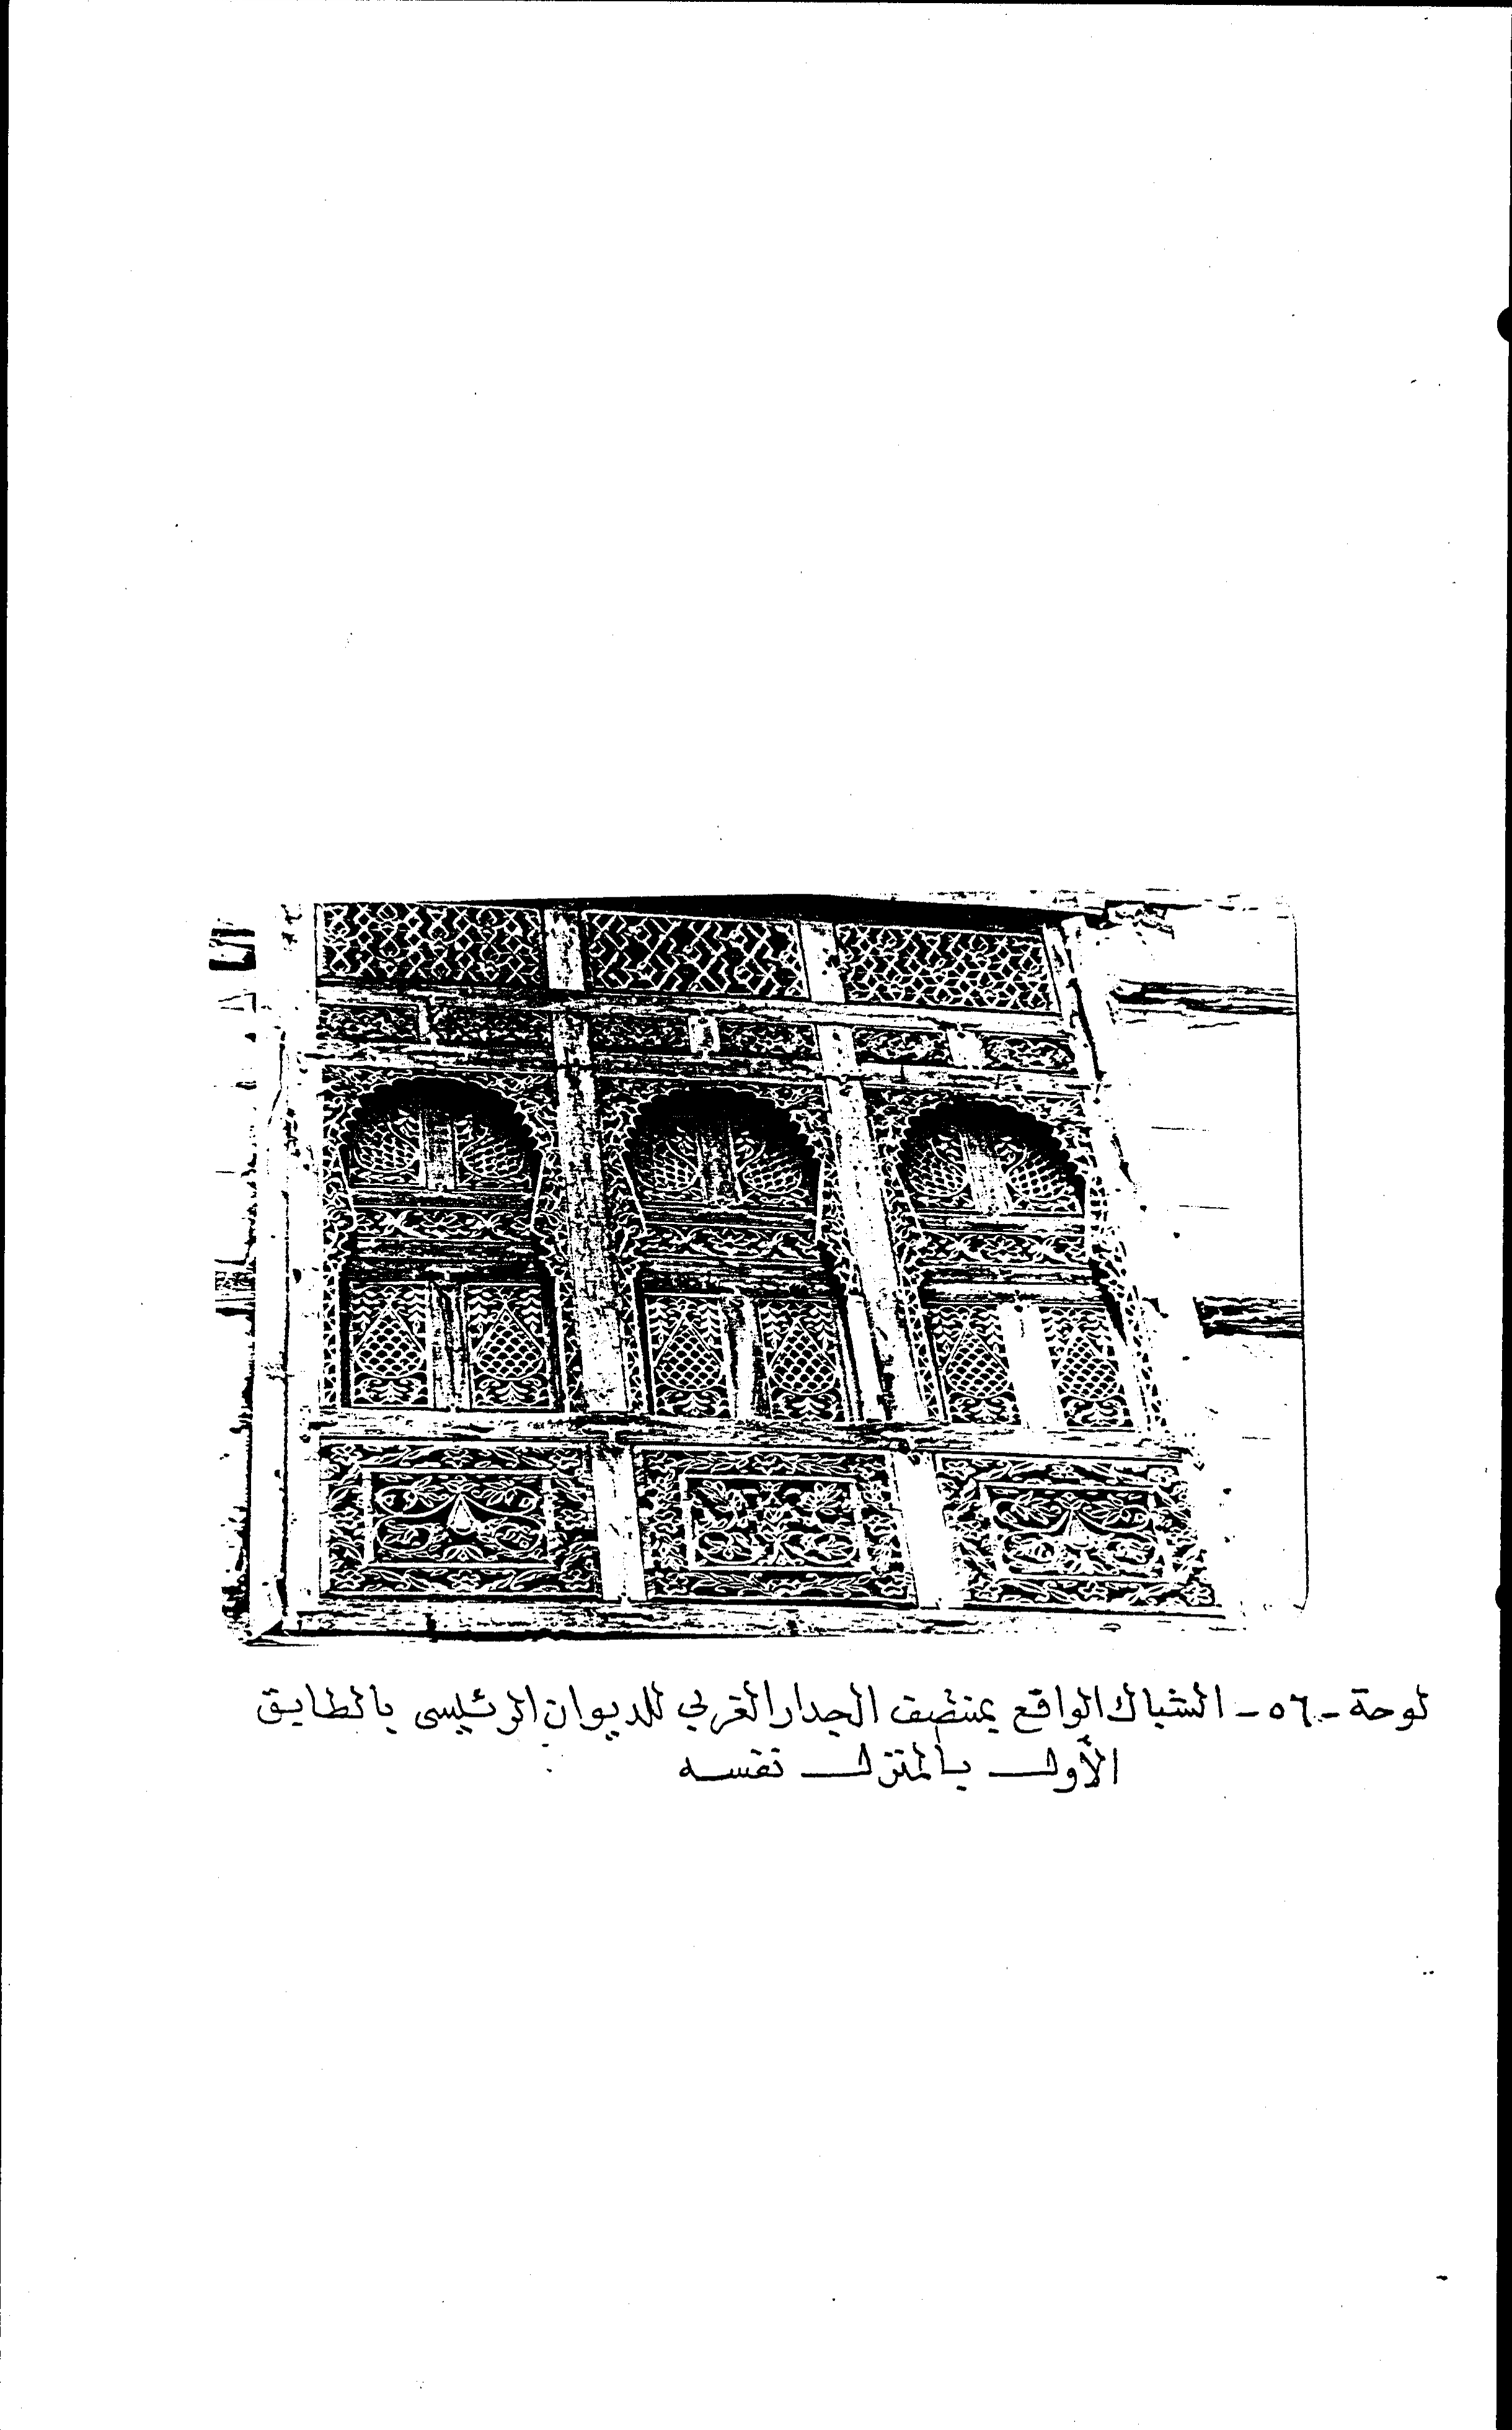 لوحة - ٥٦ - الشباك الواقع بمنتصف الجدار الغربي للديوان الرئيسى بالطابق
الأول بالمنزل نفسه